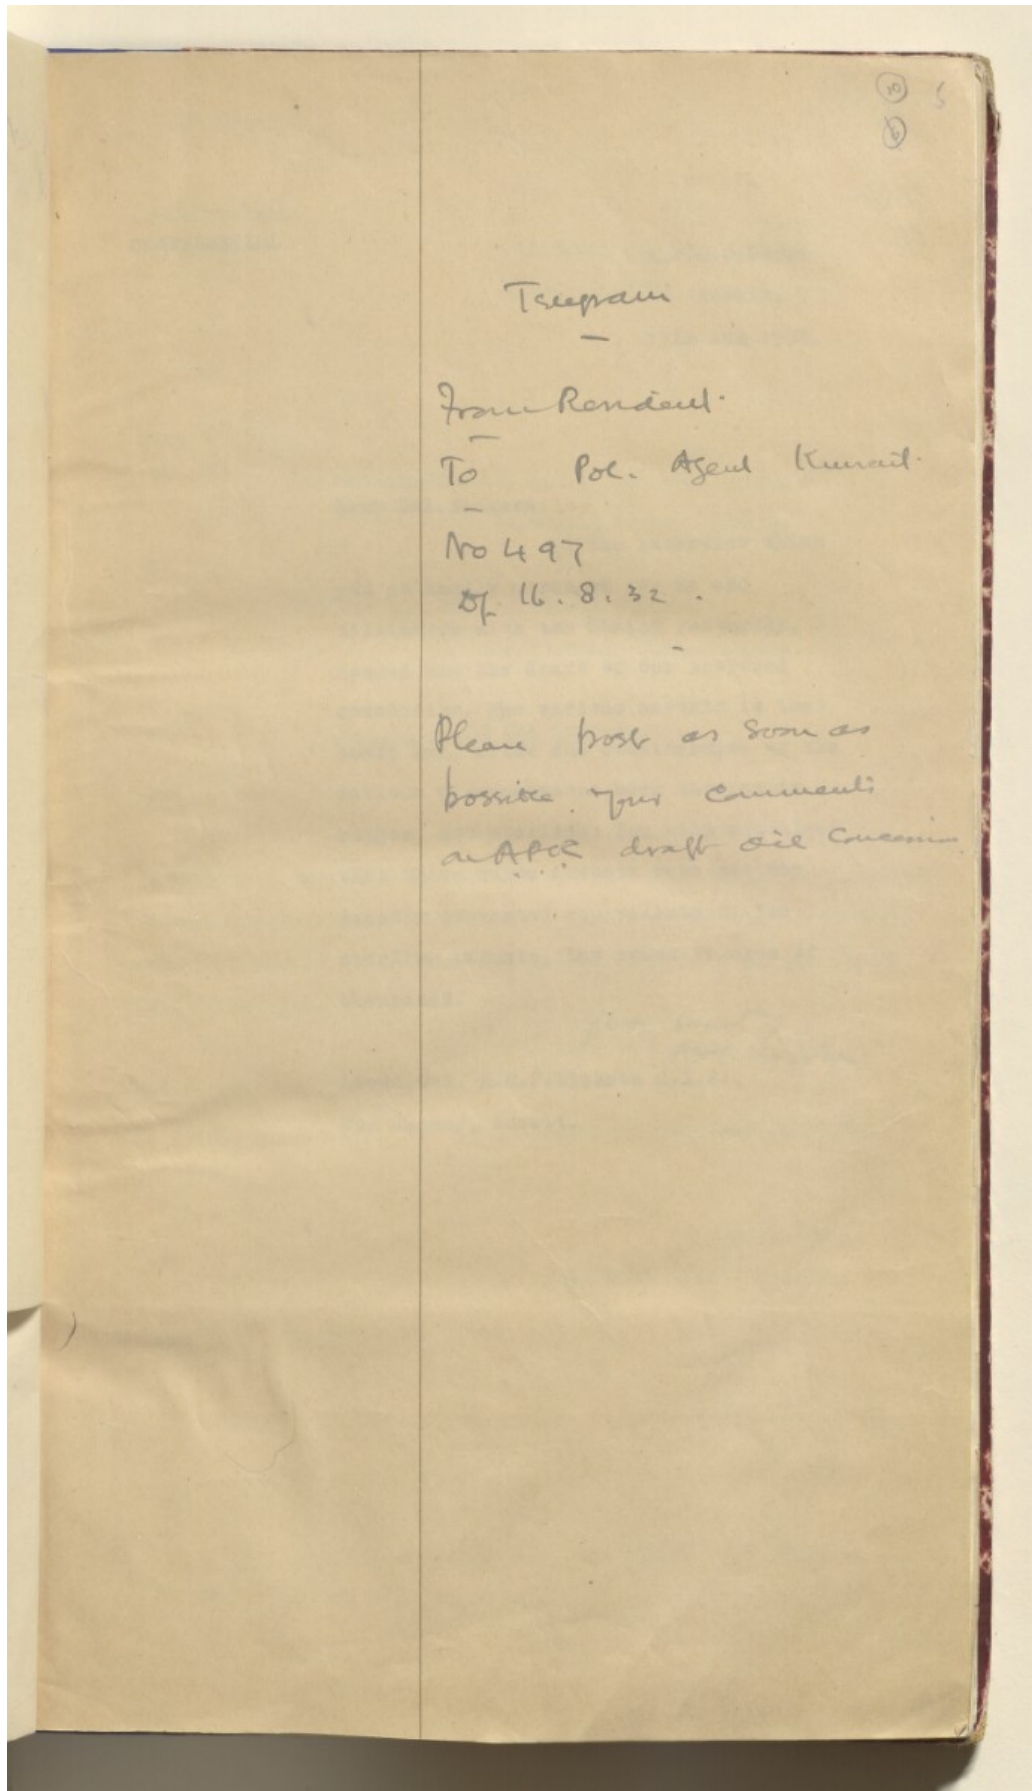 5
Telegram
From Resident.
To Pol. Agent Kuwait.
No 497
Dt. 16.8.32.
Please post as soon as
possible your comments
on draft oil Concession